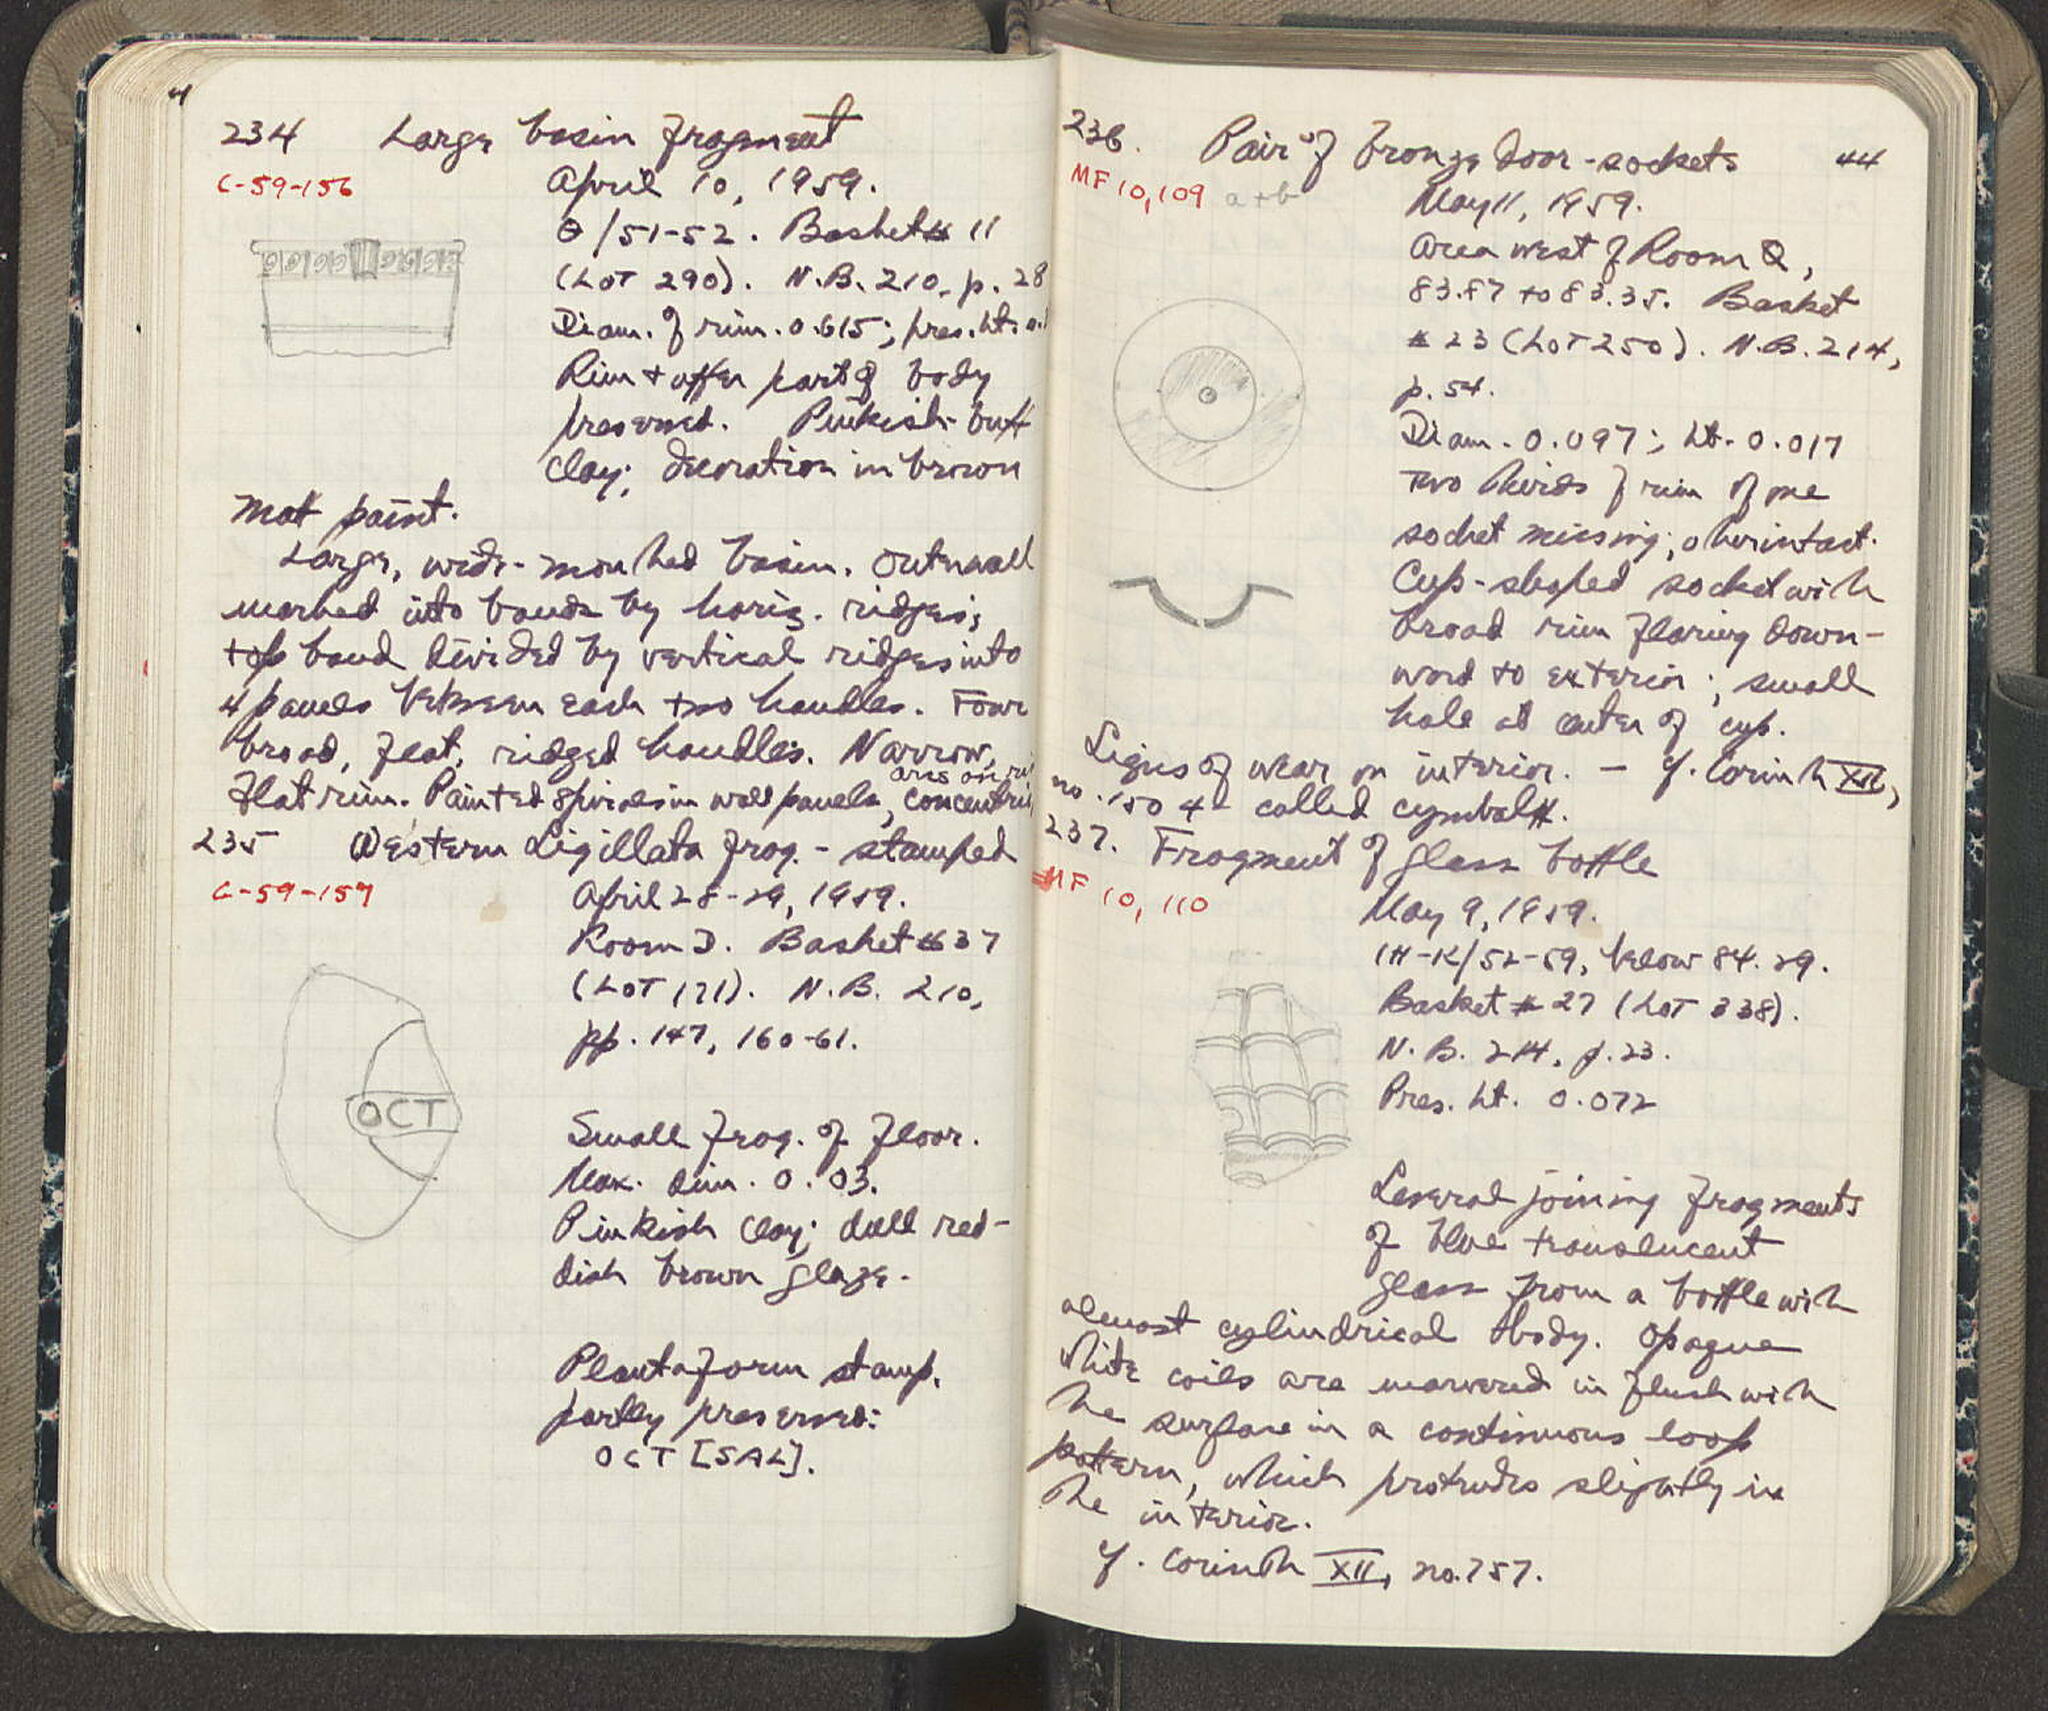 234 Large basin fragment
C-59-156
April 10, 1959.
Θ/51-52. Basket # 11
(LOT 290). N.B. 210, p. 28
Diam. of rim. 0.615; pres. ht. 0.
Rim + upper part of body
preserved. Pinkish-buff
clay; decoration in brown
mat paint.
Large, wide-mouthed basin. Outer wall
marked into bands by horiz. ridges;
top band divided by vertical ridges into
4 panels between each two handles. Four
broad, flat, ridged handles. Narrow,
flat rim. Painted spirals in wall panels, concentric
arcs on
235 Western Sigillata frag. - stamped
C-59-157
April 28-29, 1959.
Room J. Basket #37
(LOT 171). N.B. 210,
pp. 147, 160-61.
OCT
Small frag. of floor.
Max. dim. 0.03.
Pinkish clay; dull red-
dish brown glaze.
Plantaform stamp,
partly preserved:
OCT [SAL].
236. Pair of bronze door-sockets 44
MF 10,109 a+b
May 11, 1959.
Area west of Room Q,
83.87 to 83.35. Basket
# 23 (LOT 250). N.B. 214,
p. 54.
Diam. 0.097; ht. 0.017
Two thirds of rim of one
socket missing; other intact.
Cup-shaped socket with
broad rim flaring down-
ward to exterior; small
hole at center of cup.
Signs of wear on interior. - cf. Corinth XII,
no. 1504 - called cymbal.
237. Fragment of glass bottle
MF 10, 110
May 9, 1959.
H-K/52-59, below 84.29.
Basket # 27 (LOT 338).
N.B. 214, p. 23.
Pres. ht. 0.072
Several joining fragments
of blue translucent
glass from a bottle with
almost cylindrical body. Opaque
white coils are marvered in flush with
the surface in a continuous loop
pattern, which protrudes slightly in
the interior.
cf. Corinth XII, no. 757.